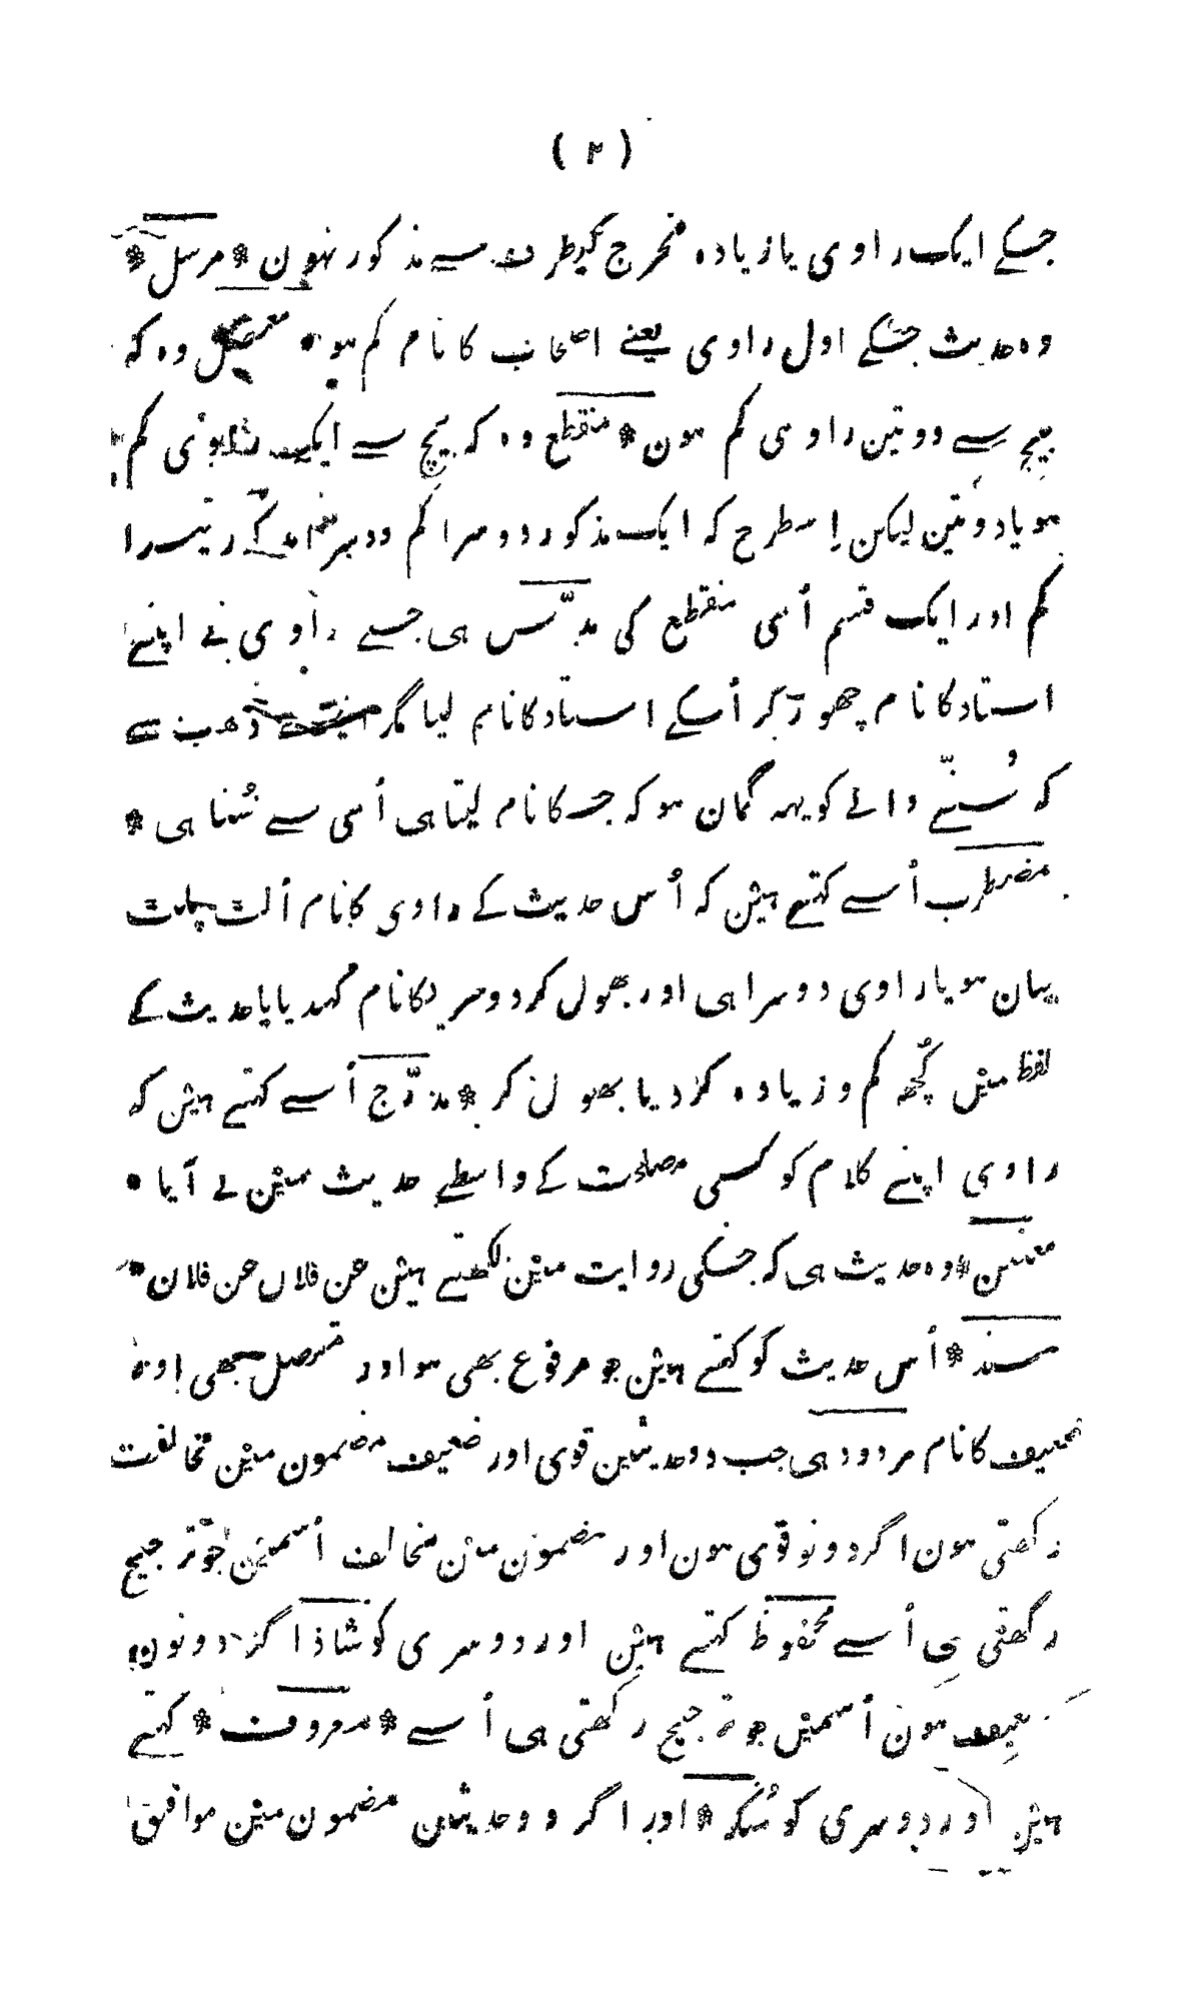 ( ٢ )
جسکے ایک راوی یا زیادہ مخرج کیطرف سے مذکور نہون * مرسل *
وہ حدیث جسکے اول راوی یعنے اصحاب کا نام کم ہو * معضل وہ کہ
بیچ سے دو تین راوی کم ہون * منقطع وہ کہ بیچ سے ایک راوی کم
ہو یا دو تین لیکن اسطرح کہ ایک مذکور دوسرا کم تیسرا
کم اور ایک قسم اُسی منقطع کی مدلّس ہی جسے راوی نے اپنے
استاد کا نام چھوڑ کر اُسکے استاد کا نام لیا مگر ڈھب سے
کہ سُنّنے والے کو یہہ گمان ہو کہ جسکا نام لیتا ہی اُسی سے سُنا ہی *
مضطرب اُسے کہتے ہیٔن کہ اُس حدیث کے راوی کا نام اُلٹ پلٹ
بیان ہو یا راوی دوسرا ہی اور بھول کر دوسریکا نام کہدیا یا حدیث کے
لفظ میٔن کُچھ کم و زیادہ کر دیا بھول کر * مدرّج اُسے کہتے ہیٔن کہ
راوی اپنے کلام کو کسی مصلحت کے واسطے حدیث میٔن لے آیا *
معنعن * وہ حدیث ہی کہ جسکی روایت میٔن لکھتے ہیٔن عن فلان عن فلان *
مسند * اُس حدیث کو کہتے ہیٔن جو مرفوع بھی ہو اور متصل بھی اور
ضعیف کا نام مردود ہی جب دو حدیثیٔن قوی اور ضعیف مضمون میٔن مخالفت
رکھتی ہون اگر دونو قوی ہون اور مضمون میٔن مخالف اُسمیٔن جو ترجیح
رکھتی ہی اُسے محفوظ کہتے ہیٔن اور دوسری کو شاذ اگر دونون
ضعیف ہون اُسمیٔن جو ترجیح رکھتی ہی اُسے * معروف * کہتے
ہیٔن اور دوسری کو مُنکر * اور اگر دو حدیثیٔن مضمون میٔن موافق